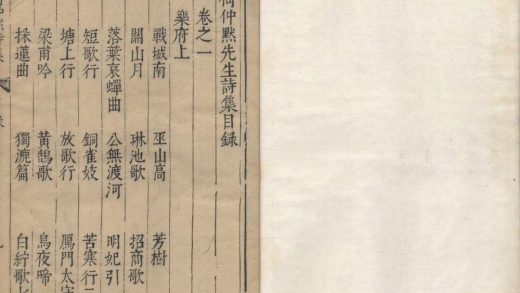 何仲默先生詩集目録
卷之一
樂府上
戰城南 巫山高 芳樹
關山月 琳池歌 招商歌
落葉哀蟬曲 公無渡河 明妃引
短歌行 銅雀妓 苦寒行二
塘上行 放歌行 鴈門太守
梁甫吟 黃鵠歌 烏夜啼
採蓮曲 獨漉篇 白紵歌